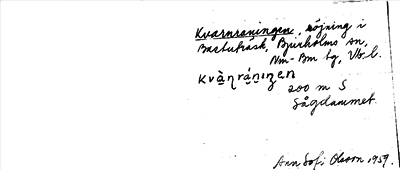 Kvarnröningen, röjning i
Bastuträsk, Bjurholms sn,
Nm-Bm tg, Vb. l.
kvàṇrạ̊́niŋen
200 m S
Sågdammet.
Ann Sofi Olsson 1959.